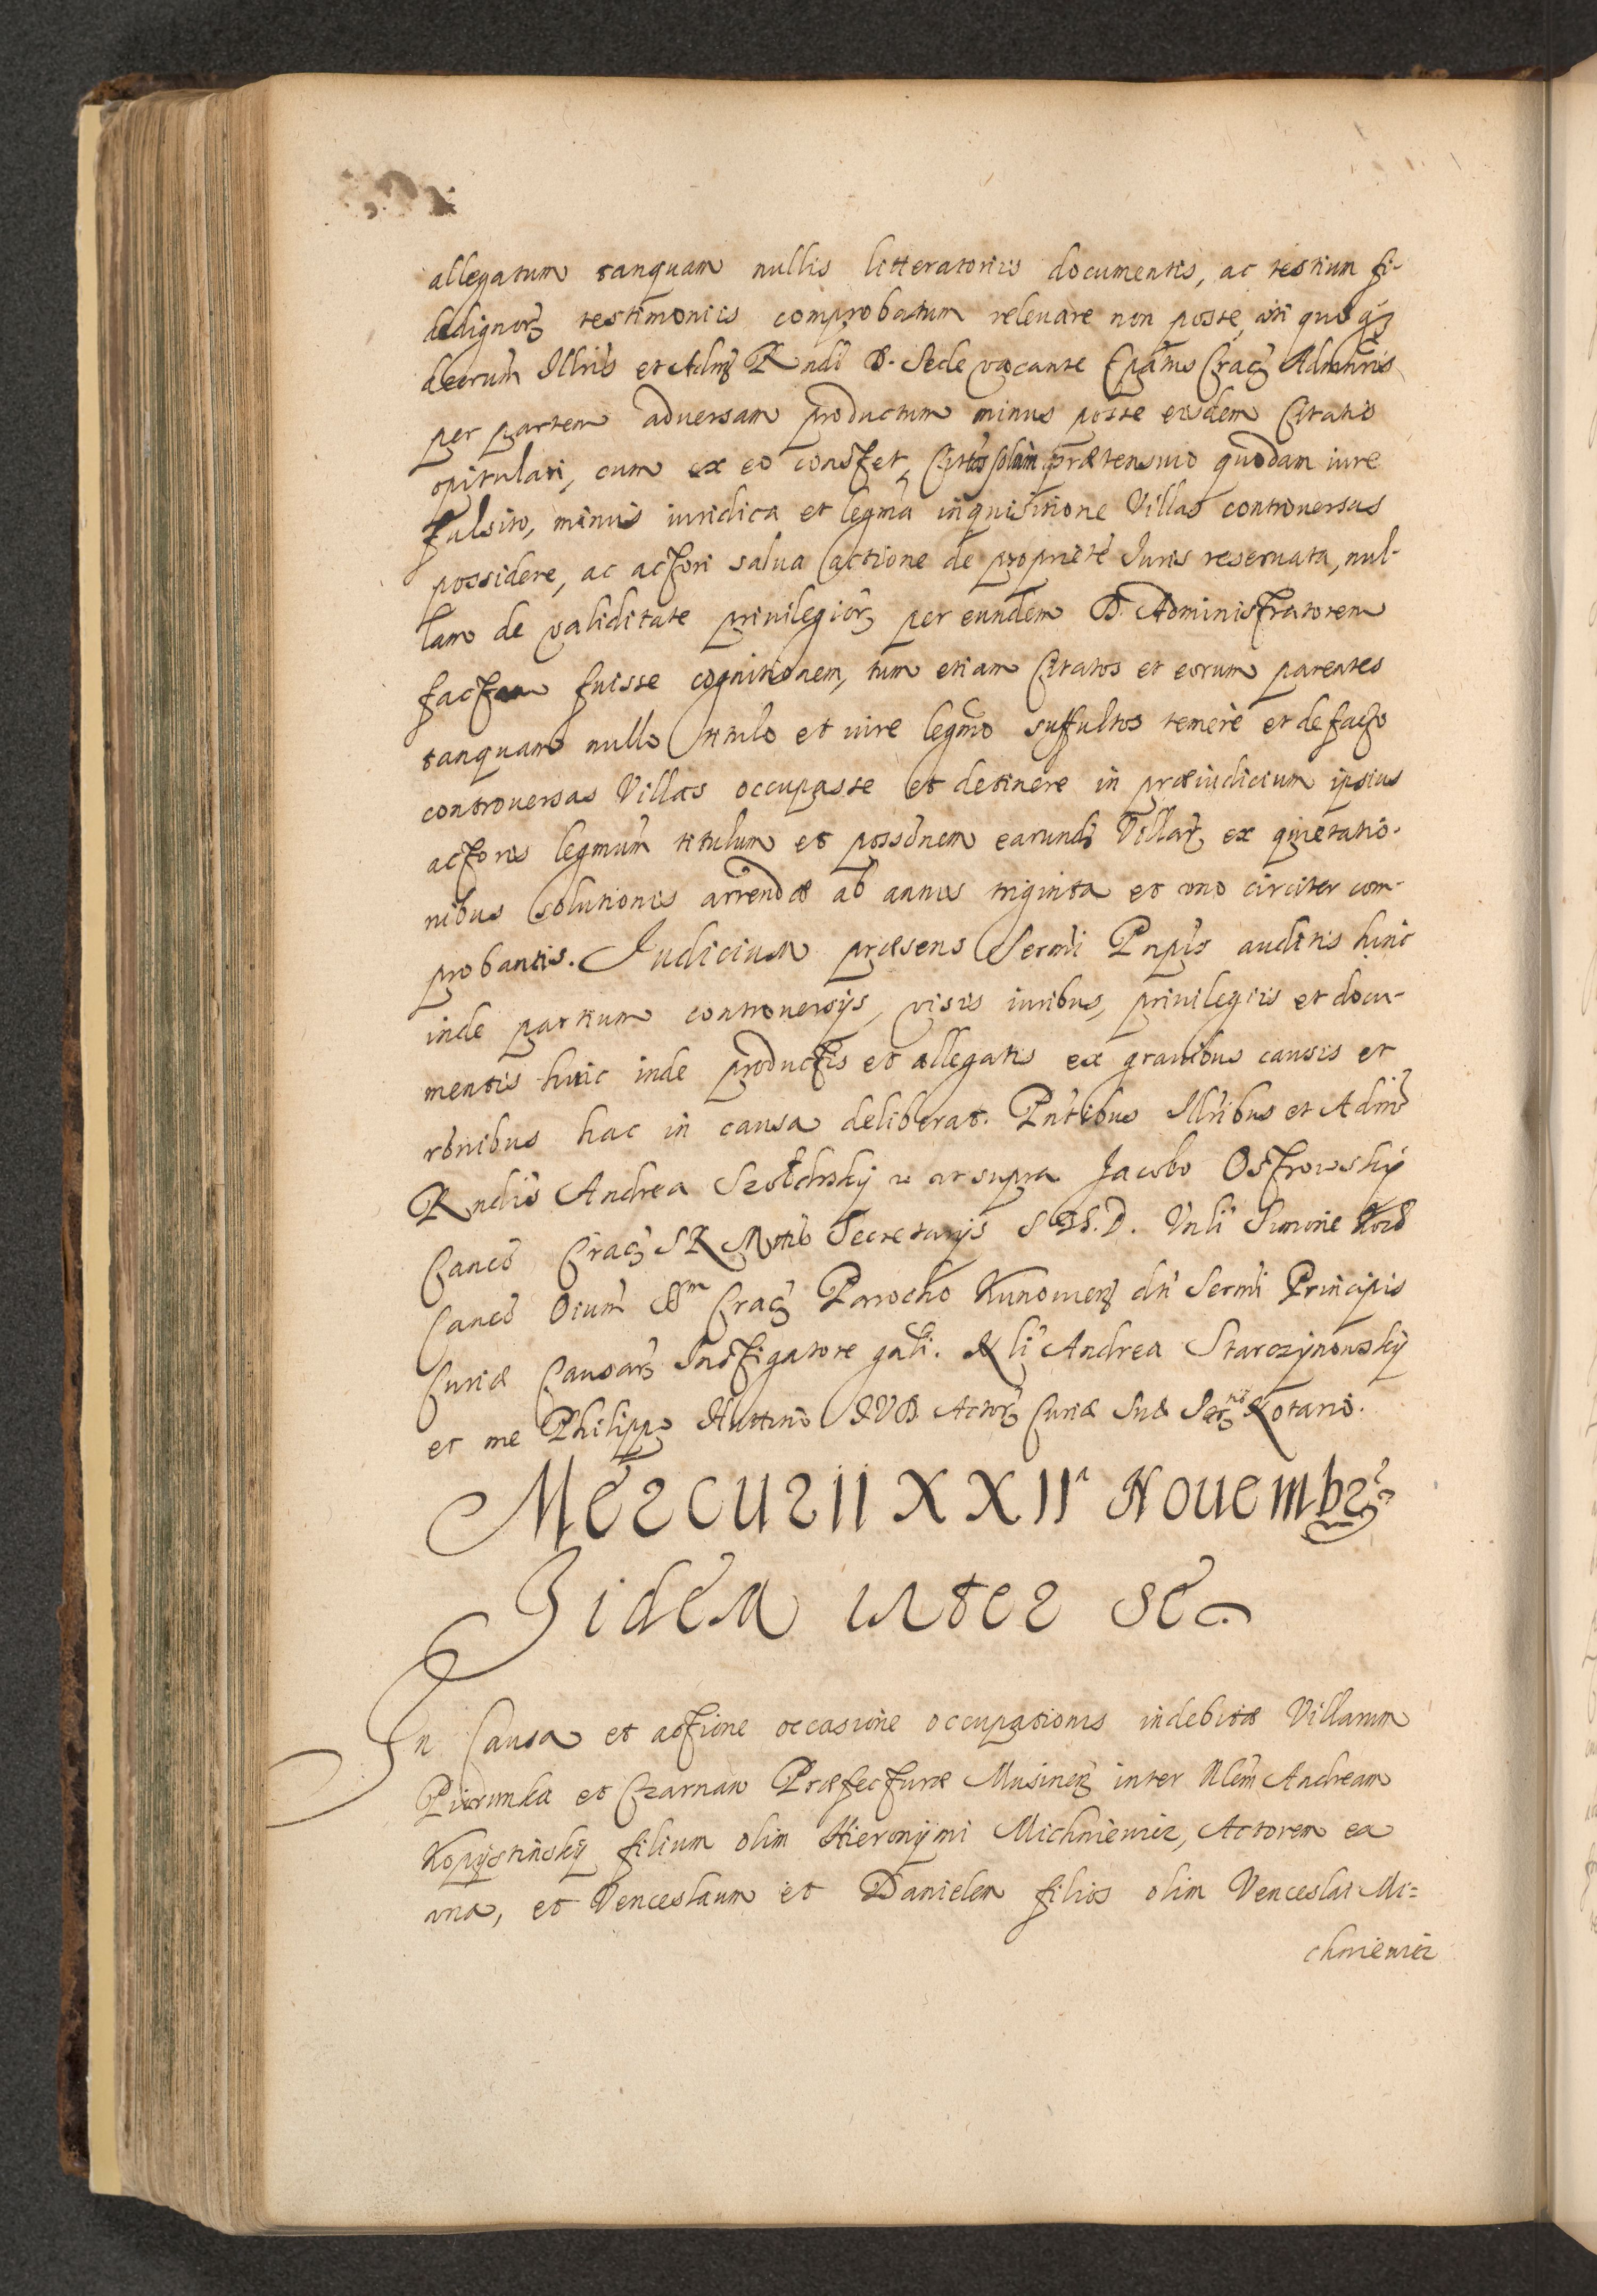 allegatum tanquam nullis litteratoriis documentis, ac testium fi-
dedignorꝫ testimoniis comprobatum relevare non posse, uti quoqꝫ
decrum̃ Illris et Admꝫ Rndi D. Sede vacante Epatus Cracꝫ Admtris
per partem adversam productum minus posse eisdem Citatis
opitulari, cum ex eo constet, Cittos solum prætensivo quodam iure
fulsito, minus iuridica et legma inquisitione Villas controversas
possidere, ac actori salva actione de proprietẽ Juris reservata, nul-
lam de validitate privilegiorꝫ per eundem D. Administratorem
factam fuisse cognitionem, tum etiam Citatos et eorum parentes
tanquam nullo titulo et iure legmo suffultos temerè et de facto
controversas Villas occupasse et detinere in præiudicium ipsius
actoris legmum titulum et possõnem earundꝫ Villarꝫ ex quietatio-
nibus solutionis arrendæ ab annis triginta et uno circiter com-
probantis. Judicium præsens Sermi Pnpis auditis hinc
inde partium controversijs, visis iuribus, privilegiis et docu-
mentis hinc inde productis et allegatis ex gravibus causis et
rõnibus hac in causa deliberat. Pntibus Illribus et Admꝫ
Rndis Andrea Szołdrsky ut supra Jacobo Ostrowsky
Canco Cracꝫ S R Mttis Secretarijs D. Vnli Simone
Canco Oium SSm Cracꝫ Parocho Kunoviensꝫ dñ Sermi Principis
Curiæ Causarꝫ Instigatore gnli. Nli Andrea Starczynowsky
et me Philippo Huttini IVD Actorꝫ Curiæ Suæ Sertis Notario.
Mercurii XXIIa Novembrꝫ
Iidem inter se
In Causa et actione occasione occupationis indebitæ Villarum
Piorunka et Czarna Præfecturæ Musinensꝫ inter Nlem Andream
Kopystinsky filium olim Hieronymi Michniewicz, Actorem ea
una, et Venceslaum et Danielem filios olim Venceslai Mi=
chniewicz